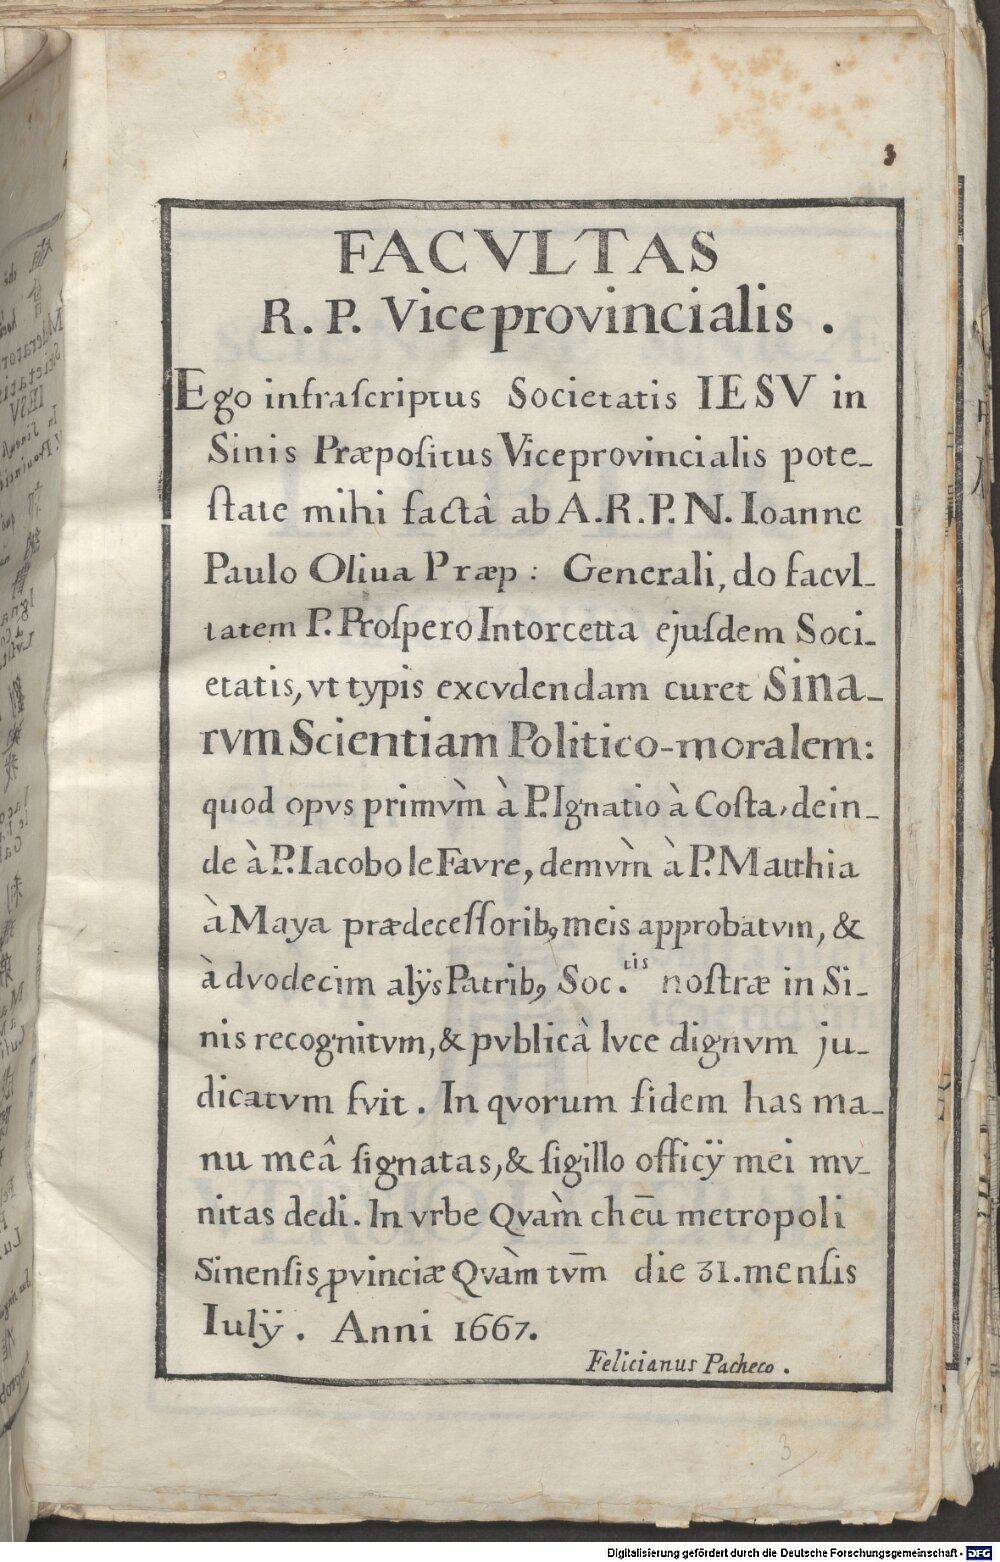 3
FACVLTAS
R. P. Viceprovincialis .
Ego infraſcriptus Societatis IESV in
Sinis Præpoſitus Viceprovincialis pote_
ſtate mihi factâ ab A. R. P. N. Ioanne
Paulo Oliua Præp : Generali, do facvl_
tatem P. Proſpero Intorcetta ejuſdem Soci_
etatis, vt typis excvdendam curet Sina_
rvm Scientiam Politico-moralem:
quod opvs primvm̀ à P. Ignatio à Coſta, dein_
de à P. Iacobo le Favre, demvm̀ à P. Matthia
à Maya prædeceſſorib, meis approbatvm, &
à dvodecim alÿs Patrib, Soc.tis noſtræ in Si_
nis recognitvm, & pvblicà lvce dignvm ju_
dicatvm fvit . In qvorum fidem has ma_
nu meâ ſignatas, & ſigillo officÿ mei mv_
nitas dedi. In vrbe Qvam̀ chēu metropoli
Sinenſis ꝓvinciæ Qvàm tvm̄ die 31. menſis
Iulÿ . Anni 1667.
Felicianus Pacheco .
3
Digitalisierung gefördert durch die Deutsche Forschungsgemeinschaft - DFG